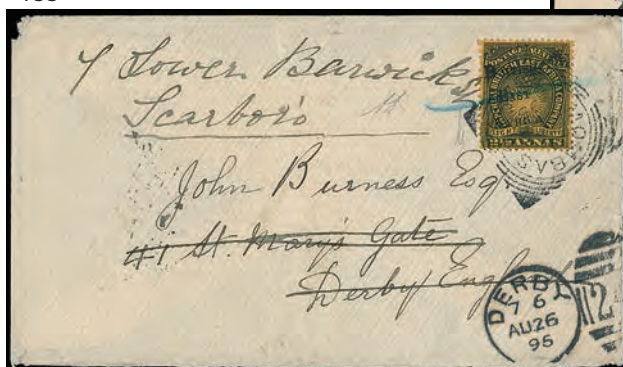 7 Lower Barwick St
Scarboro'
John Burness Esq
41 St. Mary's Gate
Derby England
POSTAGE AND
BRITISH EAST AFRICA COMPANY
LIGHT LIBERTY
ANNAS
MOMBASA
DERBY
7 6
AU 26
95